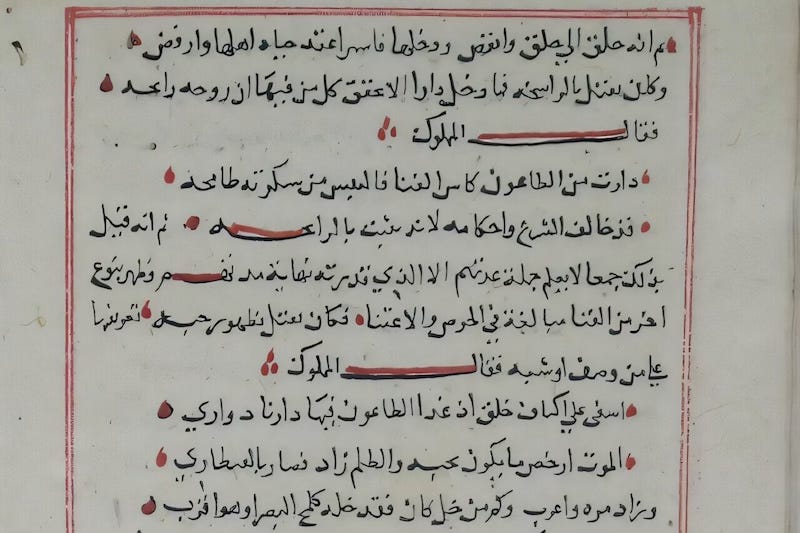 ثم انه حلق الي جلق وانغض ودخلها فاسرا عند جباه اهلها وارفض
وكان يقتل بالرائحه فما دخل دارا الا عتق كل من فيها ان روحه رائحه
فقال المملوك
دارت من الطاعون كاس الفنا فالنفس من سكرته طافحه
قد خالف الشرع واحكامه لانه يثبت بالرائحه ثم انه قتل
بذلك جمعا لا يعلم جملة عدتهم الا الذي قدرته نهاية مد نقسم وظهر بنوع
اخر من الفنا مبالغة في الحرص والاعتنا فكان يقتل بظهور حبه
علي من وصف او شبه فقال المملوك
اسفي علي اكناف جلق اذ غدا الطاعون فيها دارنا دواري
الموت ارخص ما يكون بحبه والظلم زاد فصار بالقنطاري
وزاد مره واعرب وكم من خل كان فقد خله كلمح البصر او هو اقرب